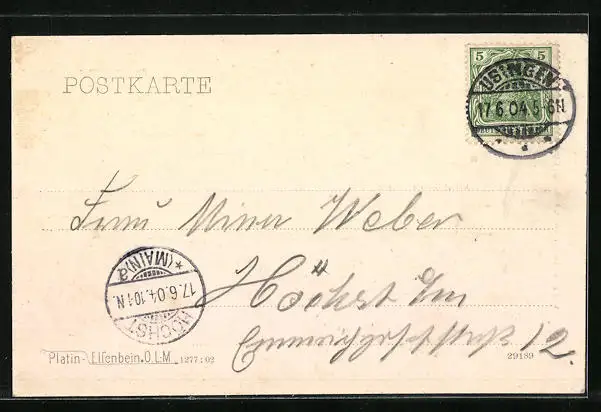 POSTKARTE
5 5
USINGEN
17.6.04.5-6N
Frau Miner Weber
Höchst a/m
12.
HÖCHST
17.6.04.10-1N.
* (MAIN) a
Platin-Elfenbein, O.L.M 1277:02
29189